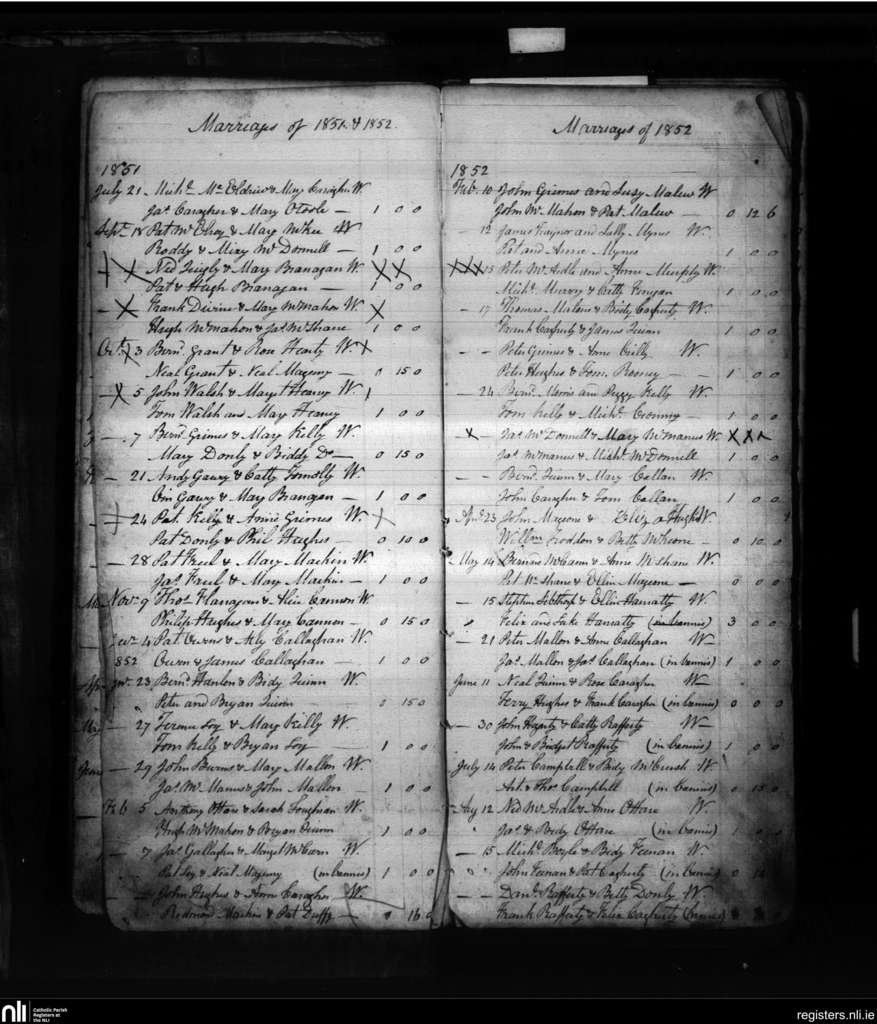 Marriages of 1851 & 1852.
1851
July 21 Michl. Mc & May Caragher W.
Jas. Caragher & Mary OToole — 1 0 0
Sept. 18 Pat McElroy & Mary McKee W
Roddy & Mary McDonnell — 1 0 0
Ned & Mary Branagan W.
Pat & Hugh Branagan — 1 0 0
— Frank Divine & Mary McMahon W.
Hugh McMahon & Jas. McShane 1 0 0
Oct. 3 Bernd. Grant & Rose Hearty W.
Neal Grant & Neal — 0 15 0
— 5 John Walsh & Margt Heany W.
Tom Walsh and May Heaney 1 0 0
— 7 Bernd. Grimes & Mary Kelly W.
Mary Donly & Biddy Do — 0 15 0
— 21 Andy & Catty W.
& May Branagan — 1 0 0
— 24 Pat. Kelly & Anne Grimes W.
Pat Donly & Phil Hughes — 0 10 0
— 28 Pat Freel & Mary Mackin W.
Jas. Freel & Mary Mackin — 1 0 0
Novr. 9 Thos. Flanagan & Alice Cannon W.
Philip Hughes & Mary Cannon — 0 15 0
14 Pat Owens & Ally Callaghan W.
852 Owen & James Callaghan — 1 0 0
23 Bernd. Hanlon & Bidy Quinn W.
Peter and Bryan Quinn 0 15 0
— 27 & Mary Killy W.
Tom Kelly & Bryan — 1 0 0
— 29 John Burns & Mary Mallon W.
Jas. McManus & John Mallon 1 0 0
Feb 5 Anthony OHare & Sarah W.
Hugh McMahon & Bryan Quinn 1 0 0
— 7 Jas. Gallagher & W.
Pat & Neal (in bannis) 1 0 0
— John Hughes & Anne Caragher W.
Redmond Mackin & Pat Duffy — 0 16 0
Marriages of 1852
1852
Feb. 10 John Grimes and Susy Malew W
John McMahon & Pat. Malew — 0 12 6
— 12 James Traynor and Sally Mynes W.
Pat and Anne Mynes 1 0 0
15 Peter McArdle and Anne Murphy W.
Michl. Murry & Catty 1 0 0
— 17 Thomas Malone & Bidy Cafferty W.
Frank Cafferty & James Quinn 1 0 0
— — Peter Grimes & Anne W.
Peter Hughes & Tom. 1 0 0
— 24 Bernd. Morris and Peggy Kelly W.
Tom Kelly & Michl. 1 0 0
— Jas. McDonnell & Mary McManus W.
Jas. McManus & Michl. McDonnell 1 0 0
— Bernd. Quinn & Mary Callan W.
John Caragher & Tom Callan 1 0 0
23 John & W.
Willm. & Betty — 0 10 0
May 14 Bernard McCann & Anne McShane W.
Pat McShane & Ellen — 0 0 0
— 15 Stephen & Ellen Hanratty W.
Felix and Luke Hanratty (in bannis) 3 0 0
— 21 Peter Mallon & Anne Callaghan W—
Jas. Mallon & Jas. Callaghan (in bannis) 1 0 0
June 11 Neal Quinn & Rose Caragher W—
Terry Hughes & Frank Caragher (in bannis) 0 0 0
— 30 John & Catty Rafferty W—
John & Bridget Rafferty (in bannis) 1 0 0
July 14 Peter Campbell & Bidy W.
Art. & Thos. Campbell (in bannis) 0 15 0
Aug 12 Ned McArdle & Anne OHare W.
Jas. & Bidy OHare (in bannis) 1 0 0
— 15 Michl. Boyle & Bidy Feenan W.
John Feenan & Pat Cafferty (in bannis) 0
— Danl. Rafferty & Betty Donly W.
Frank Rafferty & Felix Cafferty (in bannis)
nli
Catholic Parish
Registers at
the NLI
registers.nli.ie